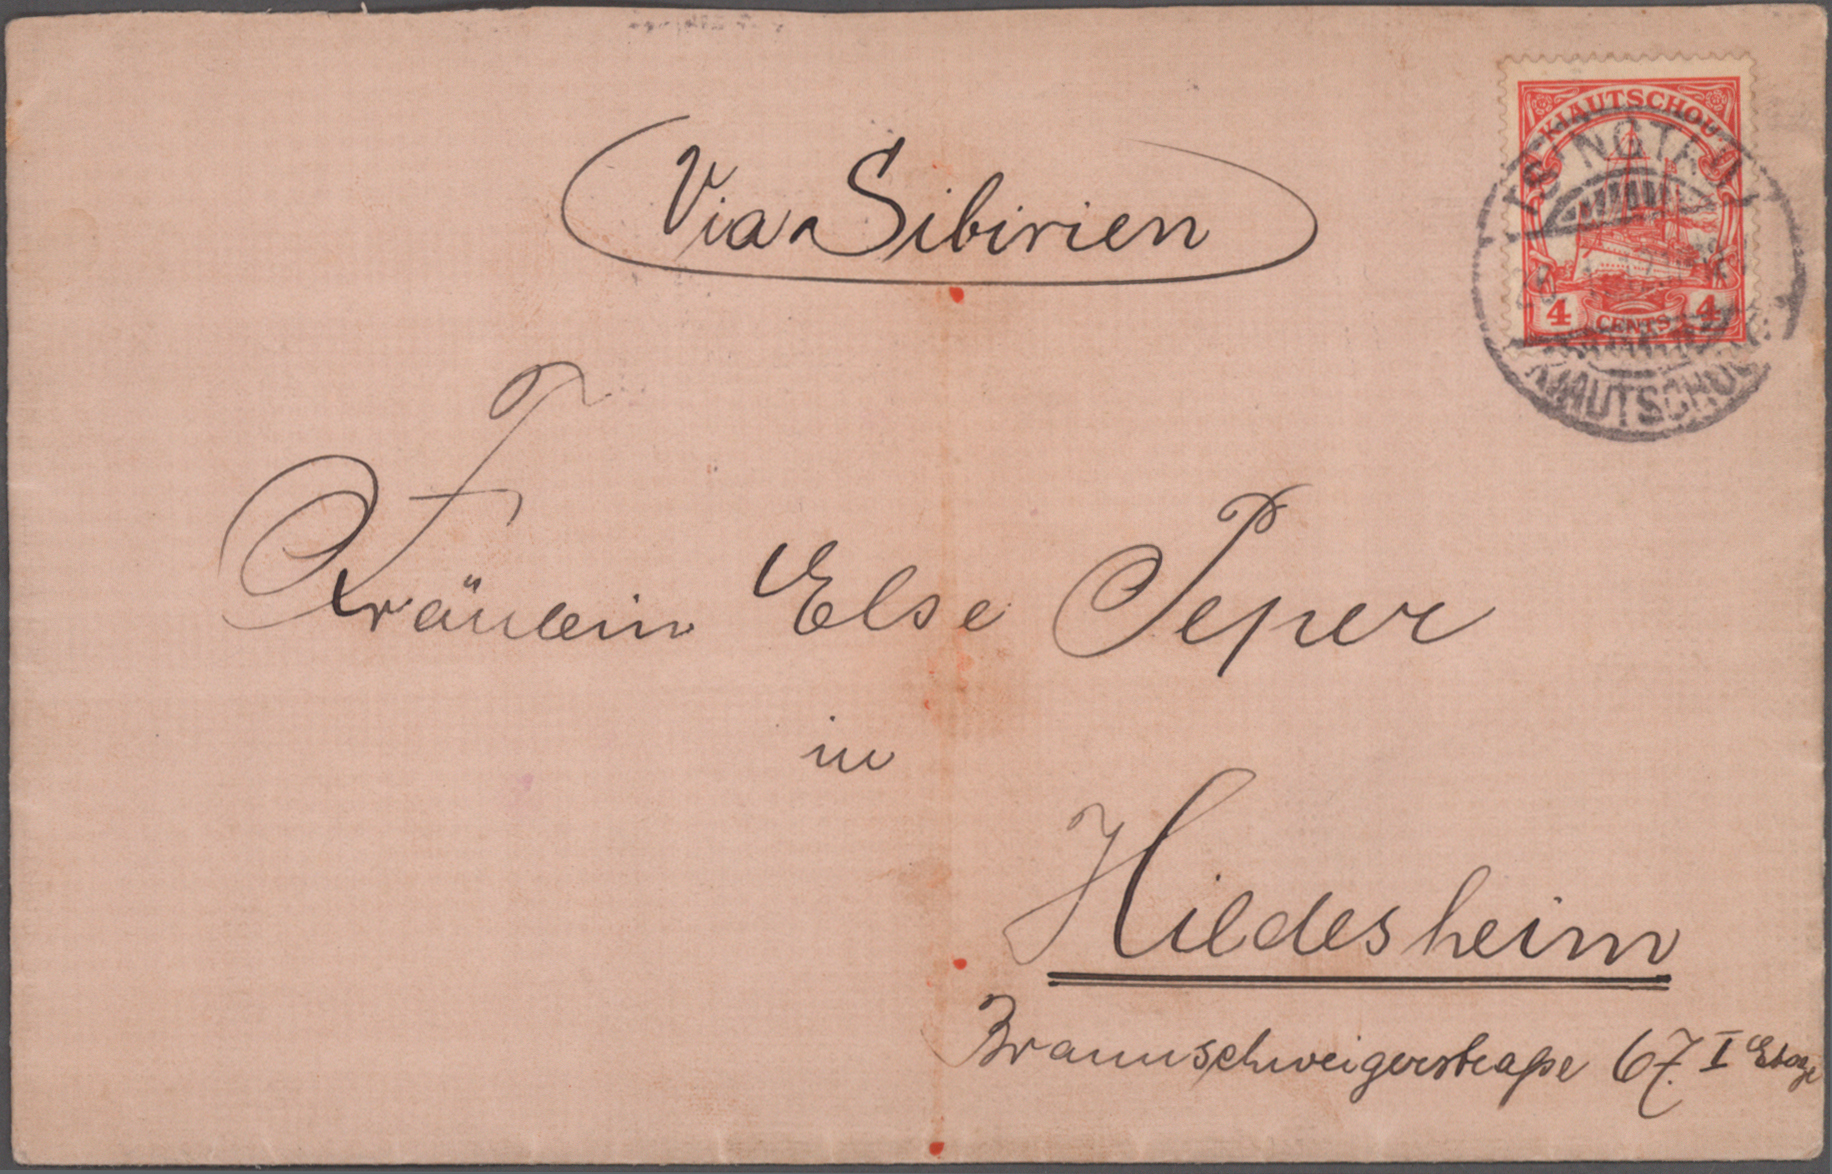 Via Sibirien
KIAUTSCHOU
TSINGTAU
4 CENTS 4
KIAUTSCHOU
Fräulein Else Peper
in
Hildesheim
Braunschweigerstraße 67. I Etage